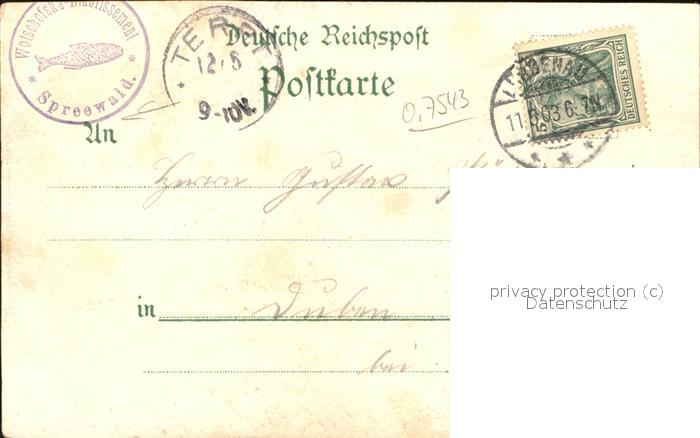 Wotschofska-Etablissement
* Spreewald. *
Deutsche Reichspost
Postkarte
12.6
9-10V.
0,7543
LÜBBENAU
11.6.03 6-7N
DEUTSCHES REICH
An
Herrn Gustav
in Duben
bei
privacy protection (c)
Datenschutz